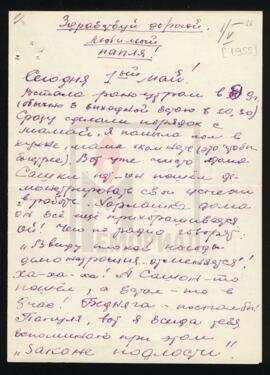 Здравствуй дорогой,
любимый
папля!
1/V
[1955]
Сегодня 1ый май!
Встала рано утром в 9 ч.
(обычно в выходной встаю в 10,30)
Сразу сделали порядок с
мамой, я помыла пол в
кухне, мама ком
Вот уже чисто дома
Сашки нет он пошёл де-
монстрировать свои успехи
в работе. Хорошенко дома
он всё ещё прихорашивался
ой! Что-то радио говорят
"Ввиду погоды
демонстрация отменяется!
ха-ха-ха! А Сашок-то
пошёл, а встал-то в
час! Бедняга-
Папуля, вот я всегда тебя
вспоминаю при этом
"законе подлости"